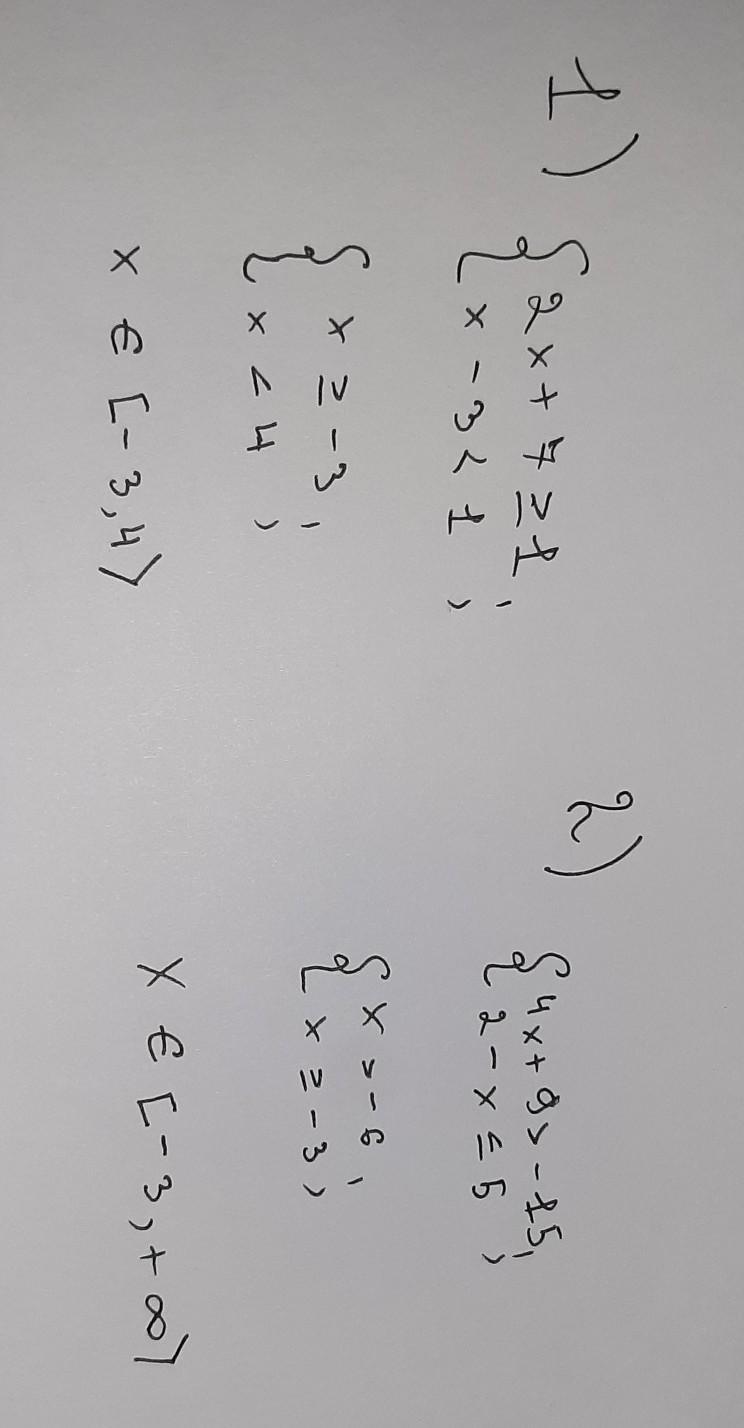 1)
{ 2x + 7 ≥ 1;
x - 3 < 1;
{ x ≥ -3;
x < 4;
x ∈ [-3,4)
2)
{ 4x + 9 > -15;
2 - x ≤ 5;
{ x > -6;
x ≥ -3;
x ∈ [-3, +∞)